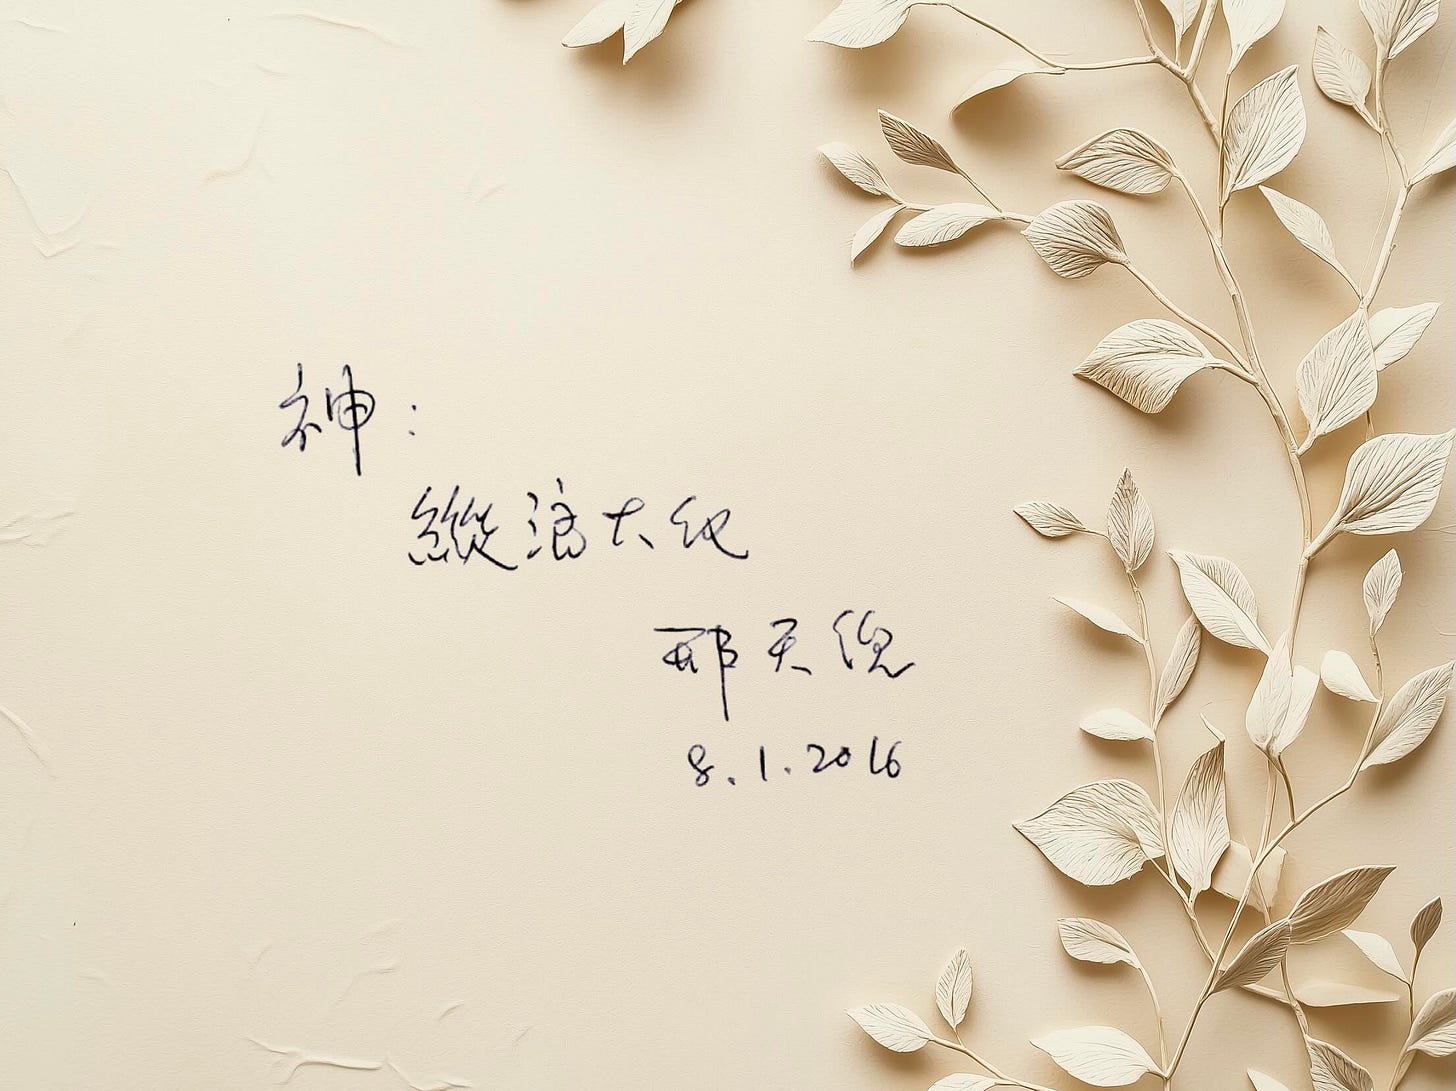 神:
縱浪大化
天倪
8.1.2016